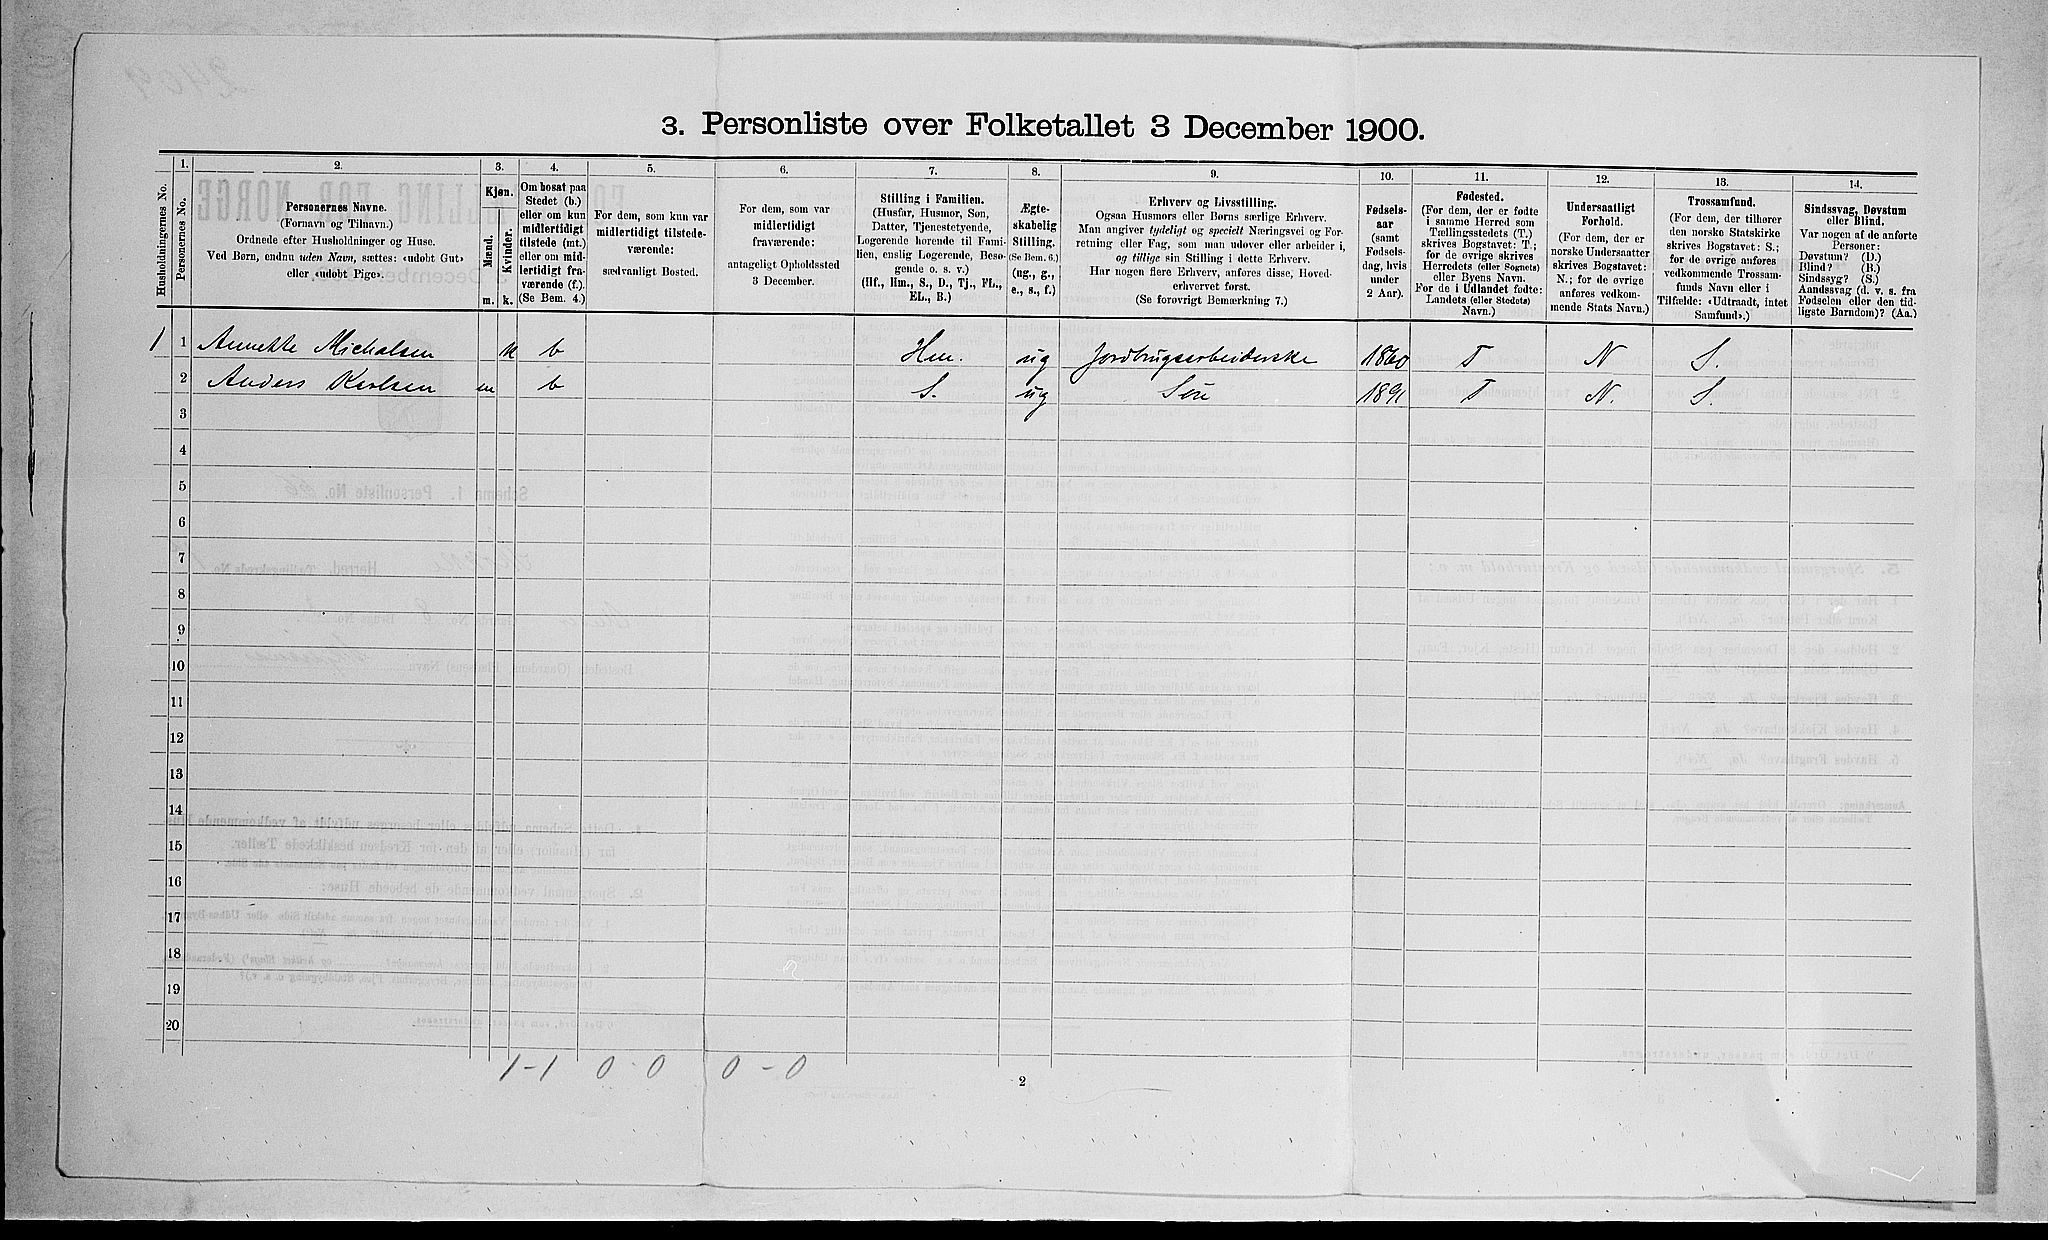 3. Personliste over Folketallet 3 December 1900.
Husholdningernes No.
1.
Personernes No.
2.
Personernes Navne.
(Fornavn og Tilnavn.)
Ordnede efter Husholdninger og Huse.
Ved Børn, endnu uden Navn, sættes: «udøbt Gut»
eller «udøbt Pige».
3.
Kjøn.
Mænd.
Kvinder.
m.
k.
4.
Om bosat paa
Stedet (b.)
eller om kun
midlertidigt
tilstede (mt.)
eller om mid-
lertidigt fra-
værende (f.).
(Se Bem. 4.)
5.
For dem, som kun var
midlertidigt tilstede-
værende:
sædvanligt Bosted.
6.
For dem, som var
midlertidigt
fraværende:
antageligt Opholdssted
3 December.
7.
Stilling i Familien.
(Husfar, Husmor, Søn,
Datter, Tjenestetyende,
Logerende hørende til Fami-
lien, enslig Logerende, Besø-
gende o. s. v.)
(Hf., Hm., S., D., Tj., FL.,
EL., B.)
8.
Ægte-
skabelig
Stilling.
(Se Bem. 6.)
(ug., g.,
e., s., f.)
9.
Erhverv og Livsstilling.
Ogsaa Husmors eller Børns særlige Erhverv.
Man angiver tydeligt og specielt Næringsvei og For-
retning eller Fag, som man udøver eller arbeider i,
og tillige sin Stilling i dette Erhverv.
Har nogen flere Erhverv, anføres disse, Hoved-
erhvervet først.
(Se forøvrigt Bemærkning 7.)
10.
Fødsels-
aar
(samt
Fødsels-
dag, hvis
under
2 Aar).
11.
Fødested.
(For dem, der er fødte
i samme Herred som
Tællingsstedets (T.)
skrives Bogstavet: T.;
for de øvrige skrives
Herredets (eller Sognets)
eller Byens Navn.
For de i Udlandet fødte:
Landets (eller Stedets)
Navn.)
12.
Undersaatligt
Forhold.
(For dem, der er
norske Undersaatter
skrives Bogstavet:
N.; for de øvrige
anføres vedkom-
mende Stats Navn.)
13.
Trossamfund.
(For dem, der tilhører
den norske Statskirke
skrives Bogstavet: S.;
for de øvrige anføres
vedkommende Trossam-
funds Navn eller i
Tilfælde: «Udtraadt, intet
Samfund».)
14.
Sindssvag, Døvstum
eller Blind.
Var nogen af de anførte
Personer:
Døvstum? (D.)
Blind? (B.)
Sindssyg? (S.)
Aandssvag (d. v. s. fra
Fødselen eller den tid-
ligste Barndom)? (Aa.)
1 1 Annette Michalsen k b Hm. ug Jordbrugsarbeiderske 1860 T N S.
2 Anders Karlsen m b S. ug Søn 1891 T N. S.
3
4
5
6
7
8
9
10
11
12
13
14
15
16
17
18
19
20
1-1 0-0 0-0
2